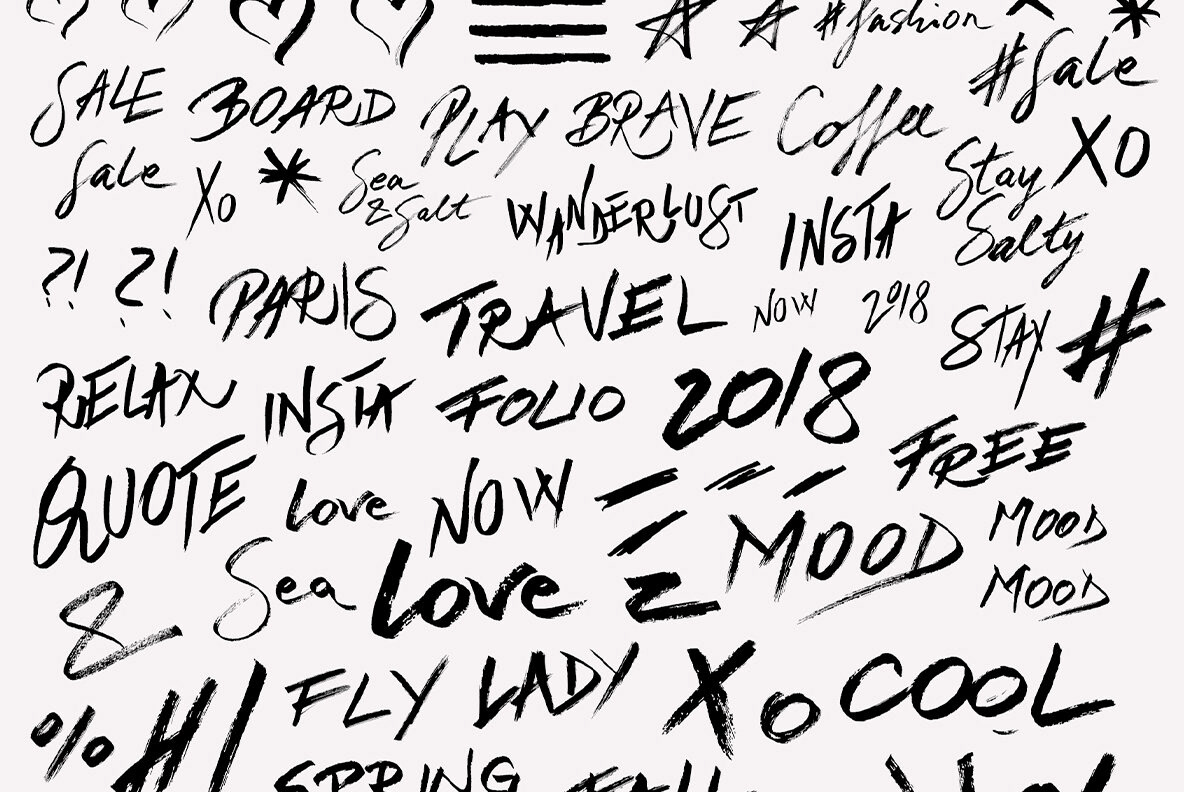 #fashion
#Sale
SALE BOARD PLAY BRAVE Coffee
XO
Sale Xo * Sea
& Salt
WANDERLUST INSTA
Stay
Salty
?! ?! PARIS TRAVEL NOW 2018 STAY #
RELAX INSTA FOLIO 2018
FREE
QUOTE Love NOW
MOOD MOOD
MOOD
& Sea Love
% HI FLY LADY XO COOL
SPRING FALL